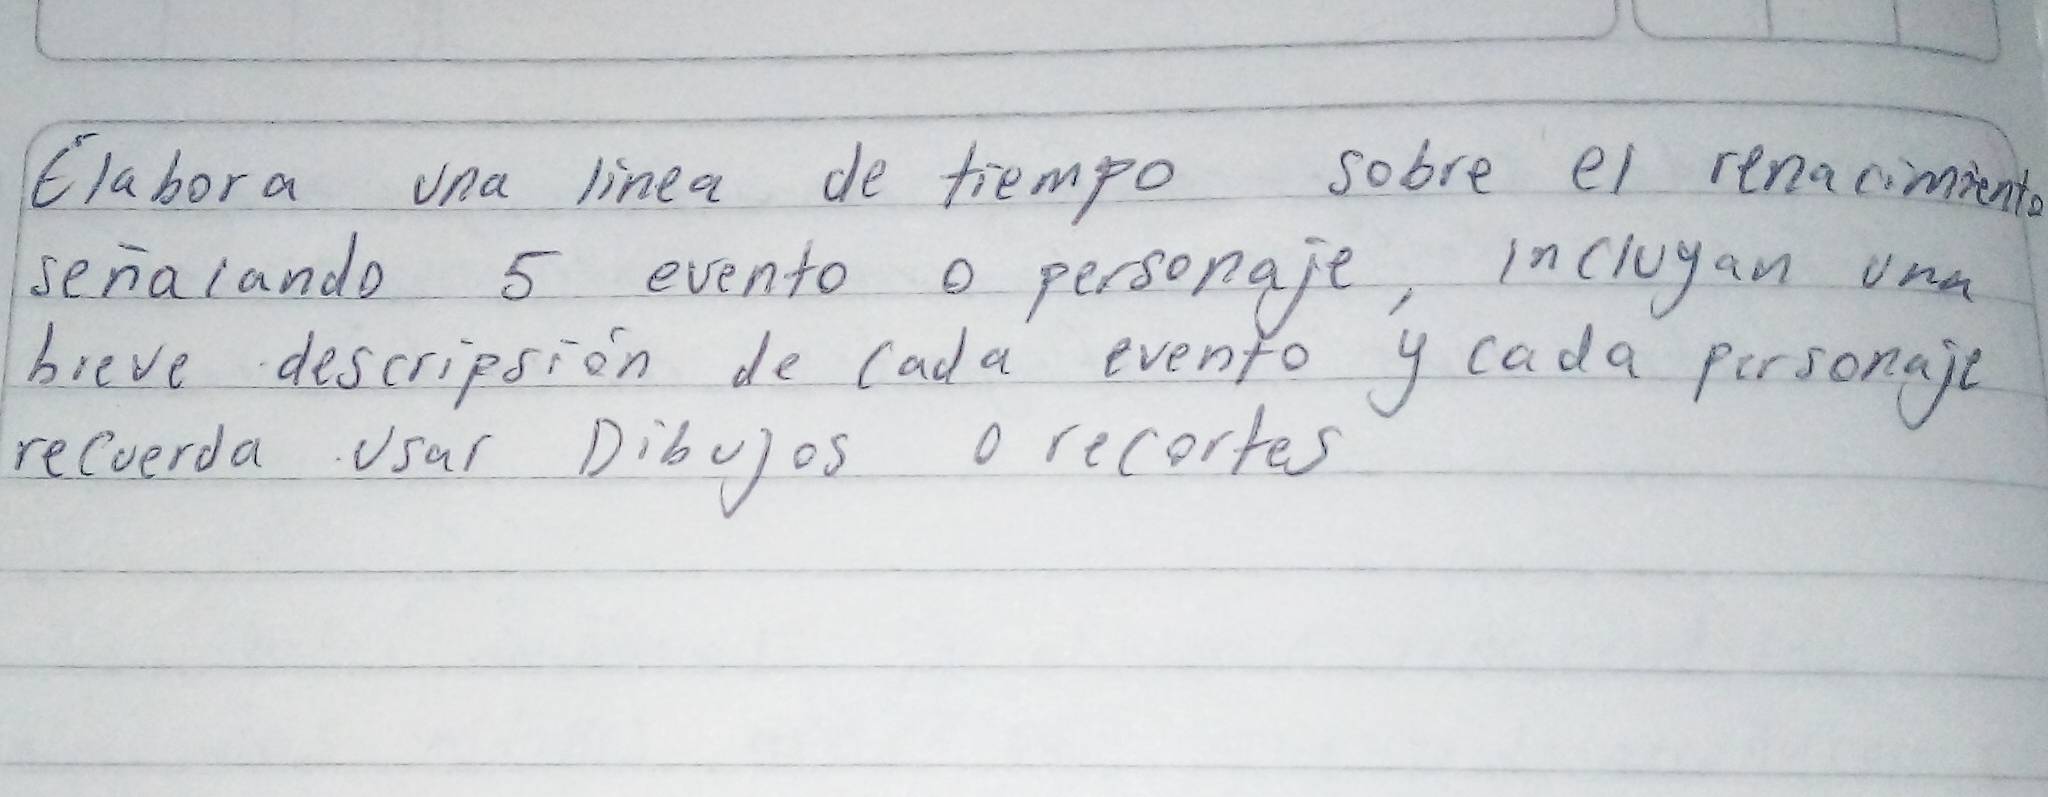 Elabora una linea de tiempo sobre el renacimiento
señalando 5 evento o personaje, incluyan una
breve descripsión de cada evento y cada personaje
recuerda usar Dibujos o recortes